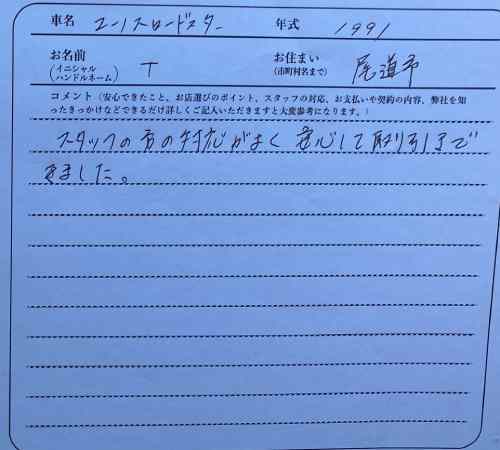 車名 ユーノスロードスター 年式 1991
お名前 (イニシャル ハンドルネーム) T お住まい (市町村名まで) 尾道市
コメント（安心できたこと、お店選びのポイント、スタッフの対応、お支払いや契約の内容、弊社を知
ったきっかけなどできるだけ詳しくご記入いただきますと大変参考になります。）
スタッフの方の対応がよく安心して取り引きで
きました。